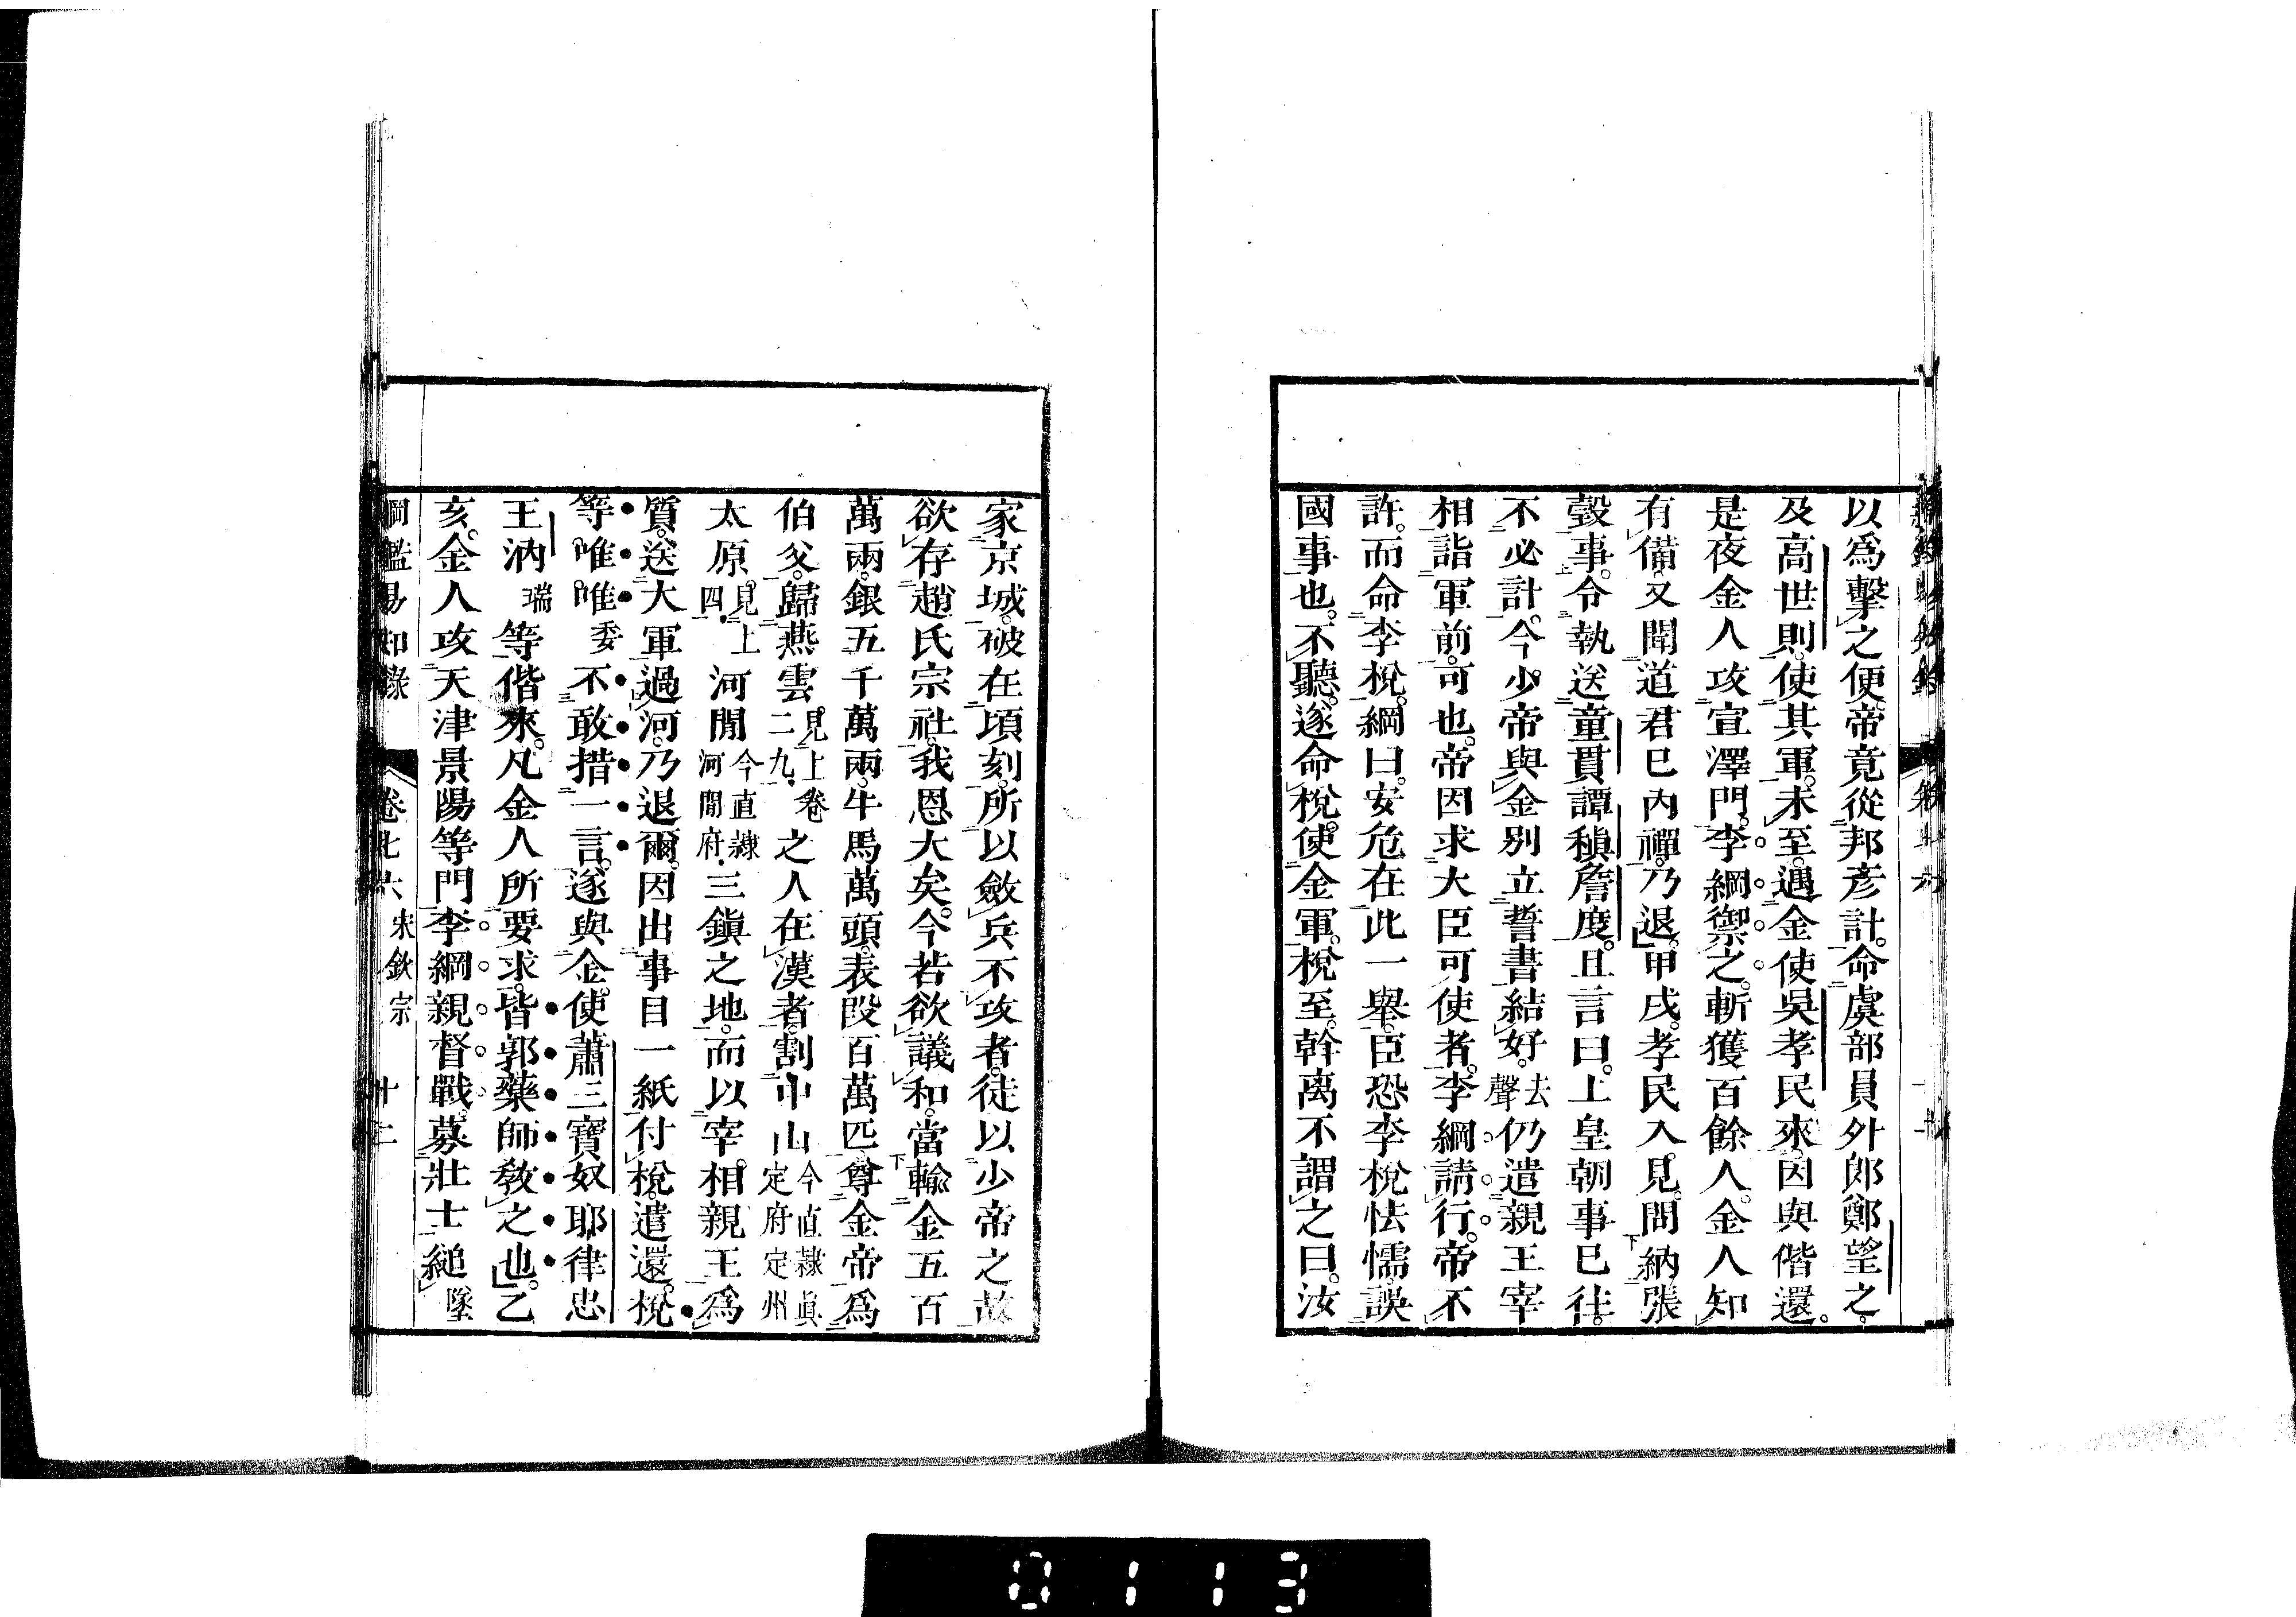 以爲擊之便。帝竟從邦彥計。命虞部員外郎鄭望之。
及高世則。使其軍。未至。遇金使吳孝民來。因與偕還。
是夜金人攻宣澤門。李綱禦之。斬獲百餘人。金人知
有備。又聞道君已內禪。乃退。甲戌。孝民入見。問納張
㲄事。令執送童貫譚稹詹度。且言曰。上皇朝事已往。
不必計。今少帝與金别立誓書結好。去聲仍遣親王宰
相詣軍前。可也。帝因求大臣可使者。李綱請行。帝不
許。而命李梲。綱曰。安危在此一舉。臣恐李梲怯懦。誤
國事也。不聽。遂命梲。使金軍。梲至。斡离不謂之曰。汝
家京城。破在頃刻。所以斂兵不攻者。徒以少帝之故
欲存趙氏宗社。我恩大矣。今若欲議和。當輸金五百
萬兩。銀五千萬兩。牛馬萬頭。表段百萬匹。尊金帝爲
伯父。歸燕雲見上卷二九。之人在漢者。割中山今直隸眞定府定州
太原。見上四。河閒今直隸河閒府。三鎭之地。而以宰相親王爲
質。送大軍過河。乃退爾。因出事目一紙付梲。遣還。梲
等。唯唯委不敢措一言。遂與金使蕭三寶奴耶律忠
王汭瑞等偕來。凡金人所要求。皆郭藥師敎之也。乙
亥。金人攻天津景陽等門。李綱親督戰。募壯士縋墜
綱鑑易知錄 卷七六 宋欽宗 十二